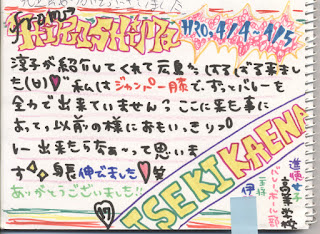 Hiroshima H20. 4/4~4/5
淳子が紹介してくれて広島からはるばる来まし
た(U)♡私はジャンパー膝でずっとバレーを
全力で出来ていません?ここに来も事に
よって、以前の様におもいっきりプ
レー出来たらなぁ〜って思いま
す 身長伸でました♡笑
ありがとうございました!!
(17)
ISEKI KAENA
進徳女子
高等学校
バレーボール部
主将
伊